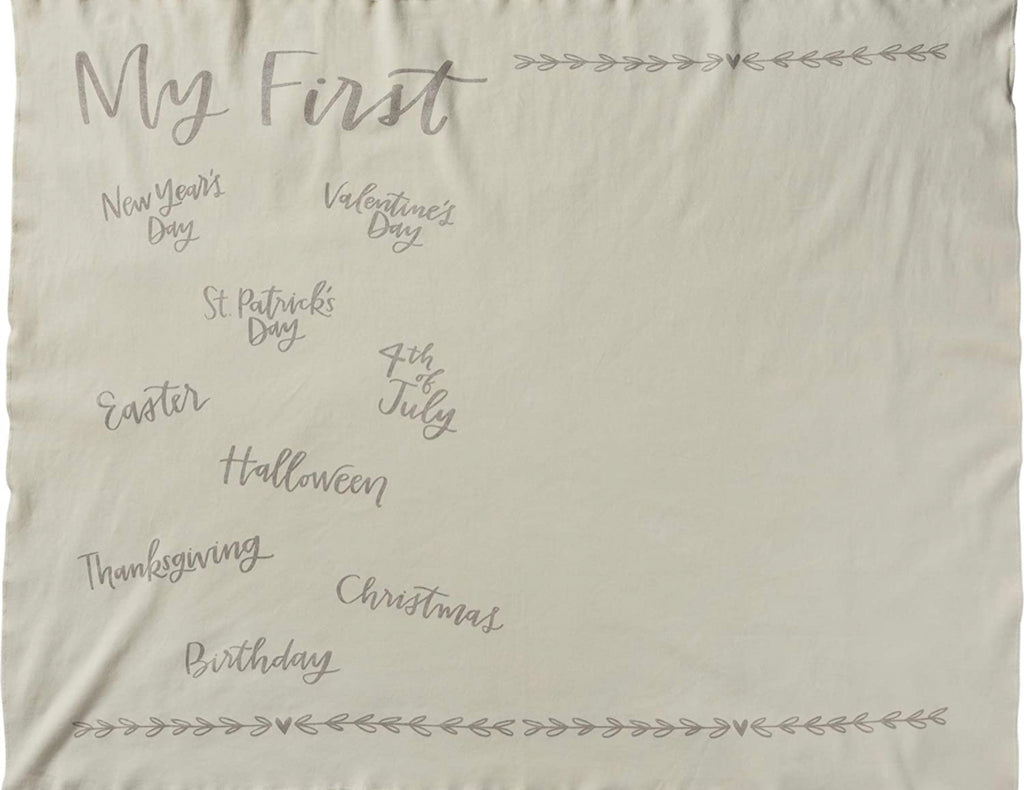 My First
New Year's
Day
Valentine's
Day
St. Patrick's
Day
4th
of
July
Easter
Halloween
Thanksgiving
Christmas
Birthday